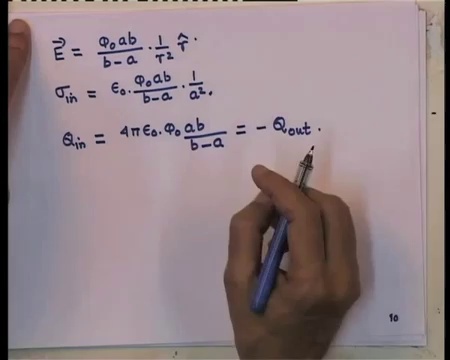 E⃗ = φ₀ab/(b−a) · 1/r² r̂ .
σin = ε₀ · φ₀ab/(b−a) · 1/a² .
Qin = 4πε₀ · φ₀ ab/(b−a) = − Qout .
10